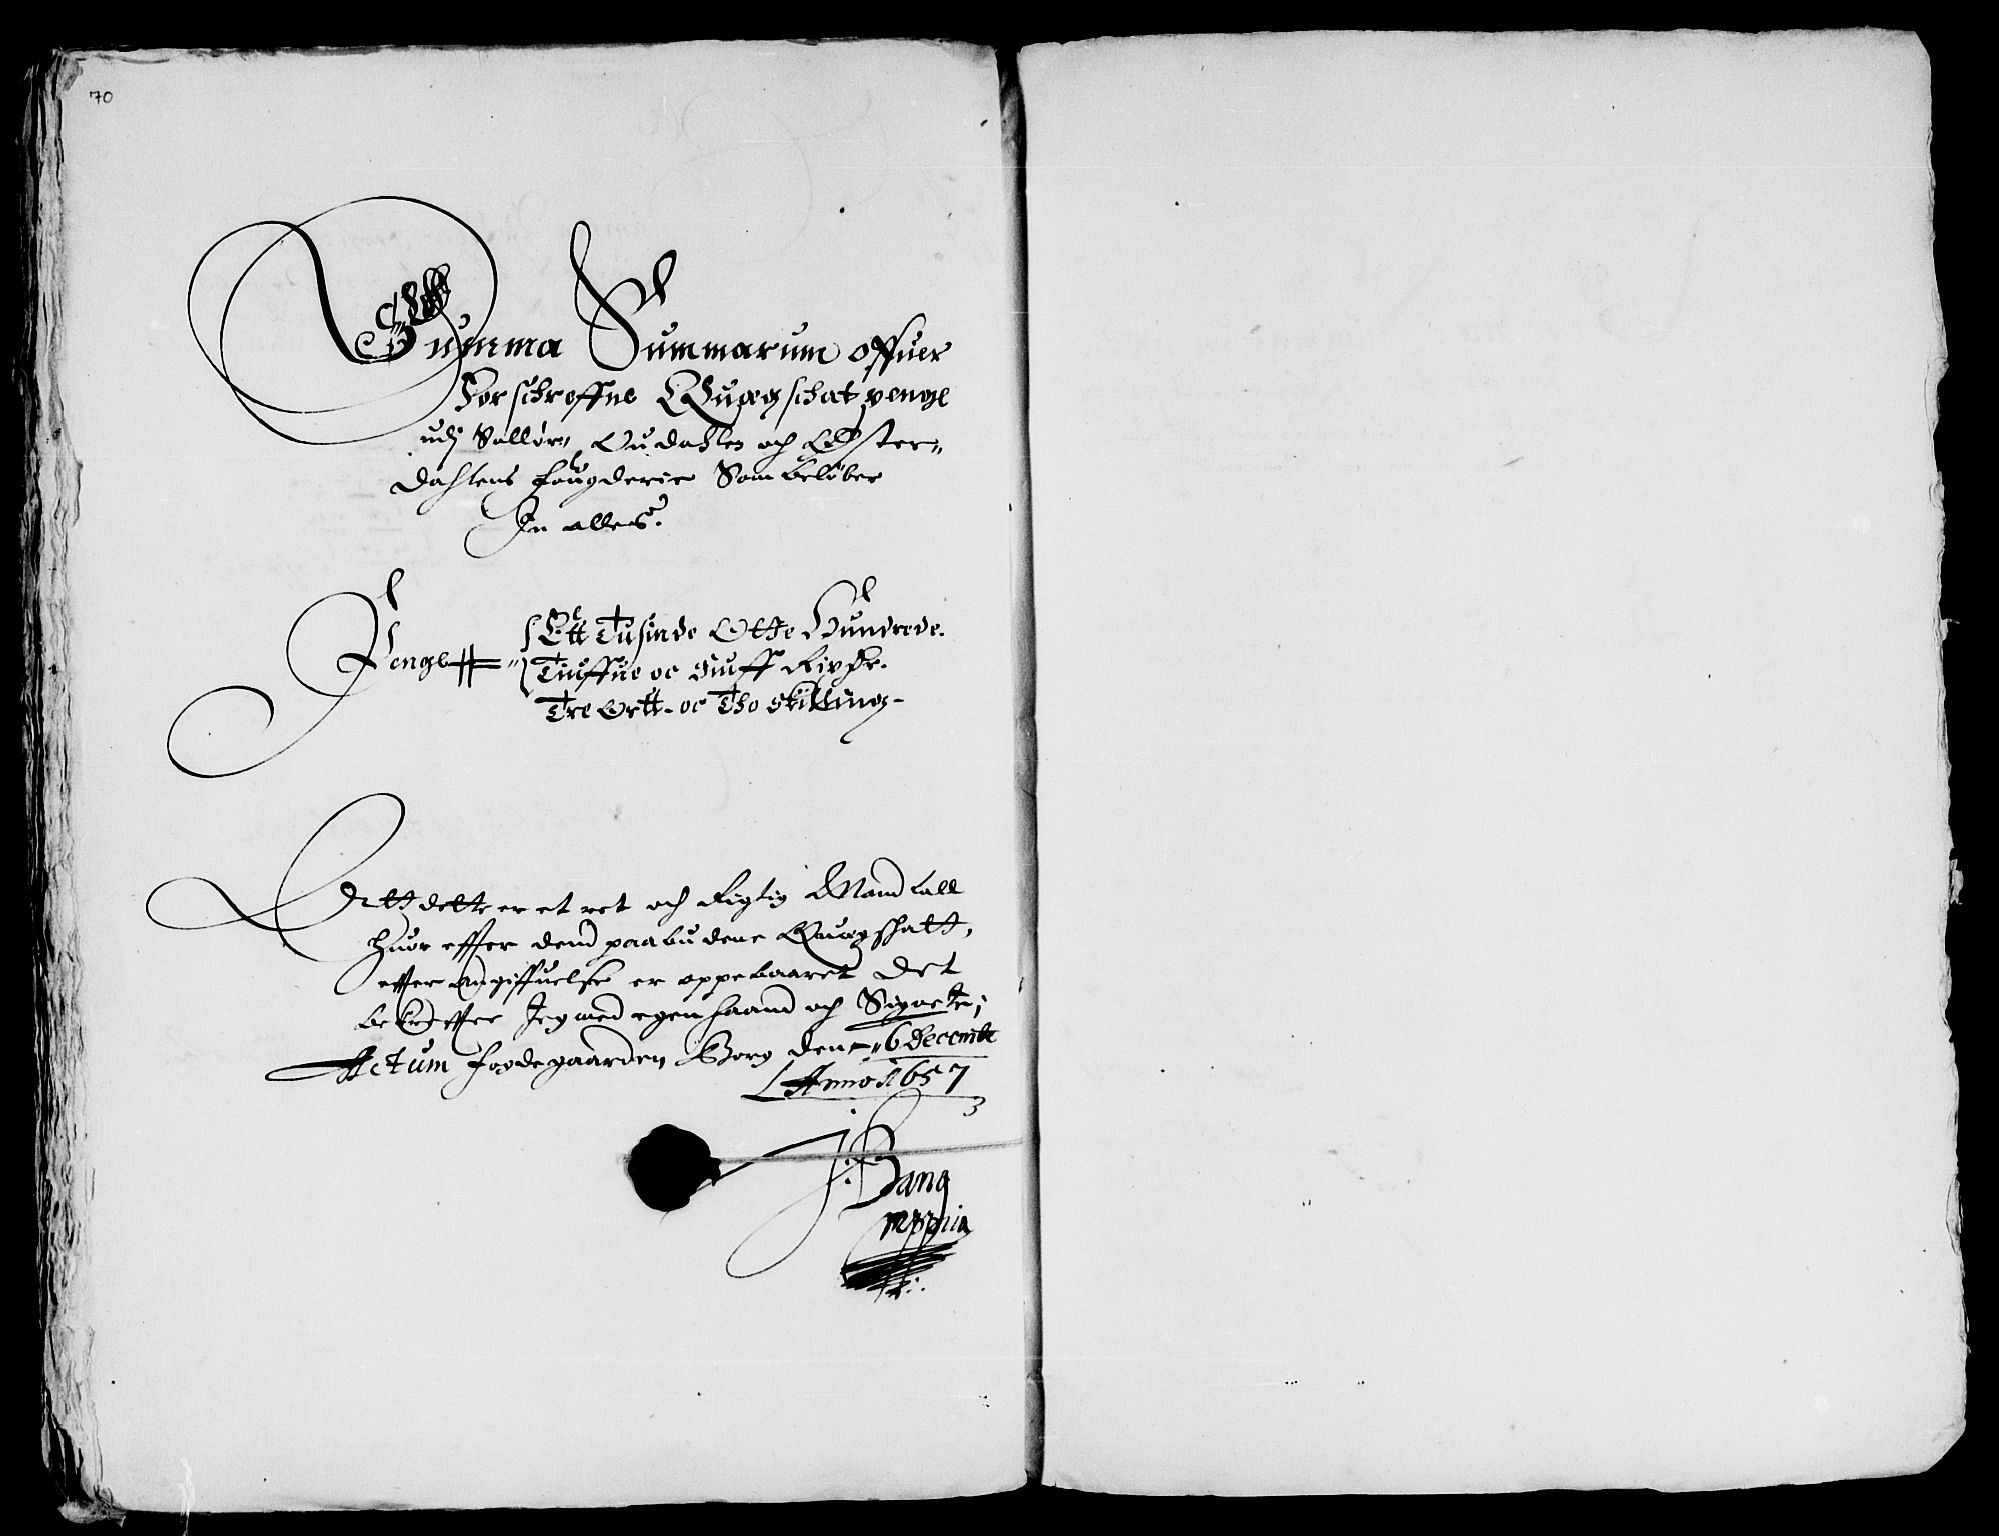 70
Summa Summarum offuer
Forschreffne Quegschat penge
udj Sollør, Oudahlen och Øster„
dahlens fougderie Som beløber
In alles.
Penge „ Ett Tusinde Otte Hundrede.
Tiuffue oc Siuff Rixdr.
Tre Ortt- oc Tho Skilling-
Att dette er et ret och Rigtig Mandtall
huor effter dend paabudene Quegshatt,
effter Angiffuelse er oppebaaret Det
bekreffter Jeg med egen haand och Signete;
Actum fogdegaarden Borg den 6 Decembr
Anno 1657
J: Bang
mppria